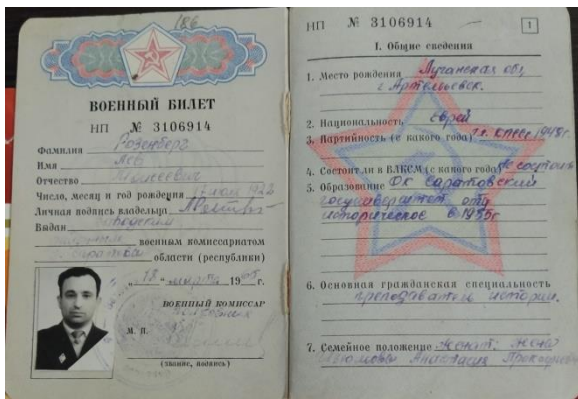 186
ВОЕННЫЙ БИЛЕТ
НП № 3106914
Фамилия Розенберг
Имя Лев
Отчество Моисеевич
Число, месяц и год рождения 17 мая 1922
Личная подпись владельца
Выдан
военным комиссариатом
области (республики)
„18" марта 1965 г.
ВОЕННЫЙ КОМИССАР
М. П.
(звание, подпись)
НП № 3106914
1
I. Общие сведения
1. Место рождения Луганская обл,
г. Артемовск.
2. Национальность еврей
3. Партийность (с какого года) чл. КПСС 1948г.
4. Состоит ли в ВЛКСМ (с какого года) не состоял
5. Образование Ок. Саратовский
госуниверситет, отд.
историческое в 1955г
6. Основная гражданская специальность
преподаватель истории.
7. Семейное положение женат: жена
Анастасия